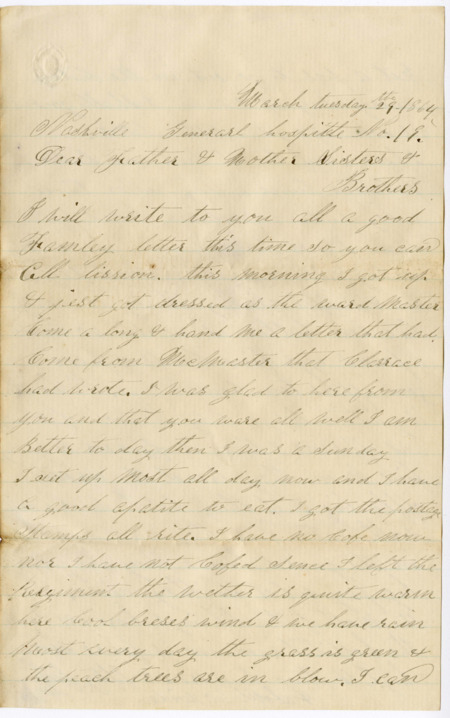 March tuesday 29th 1864
Nashville Generarl hospitle No. 19.
Dear Father & Mother Sisters &
Brothers
I will write to you all a good
Famley letter this time so you can
Call lission. this morning I got up
& jest got dressed as the ward Master
Come a long & hand me a letter that had
Come from McMaster that Clarrace
had wrote. I was glad to here from
you and that you ware all well I am
Better to day then I was a Sunday
I set up Most all day now and I have
a good apatite to eat. I got the postage
Stamps all rite. I have no Cofe now
nor I have not Cofed Sence I left the
Regiment the wether is quite warm
here Cool breses wind & we have rain
Most every day the grass is green &
the peach trees are in blow. I can